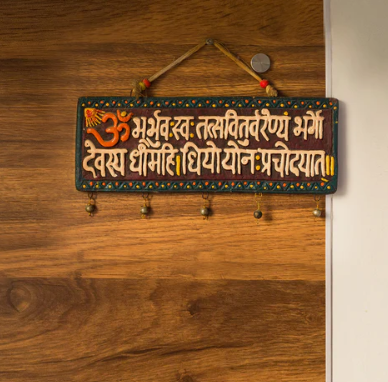 ॐ भूर्भुवःस्वः तत्सवितुर्वरेण्यं भर्गो
देवस्य धीमहि। धियो योनःप्रचोदयात॥